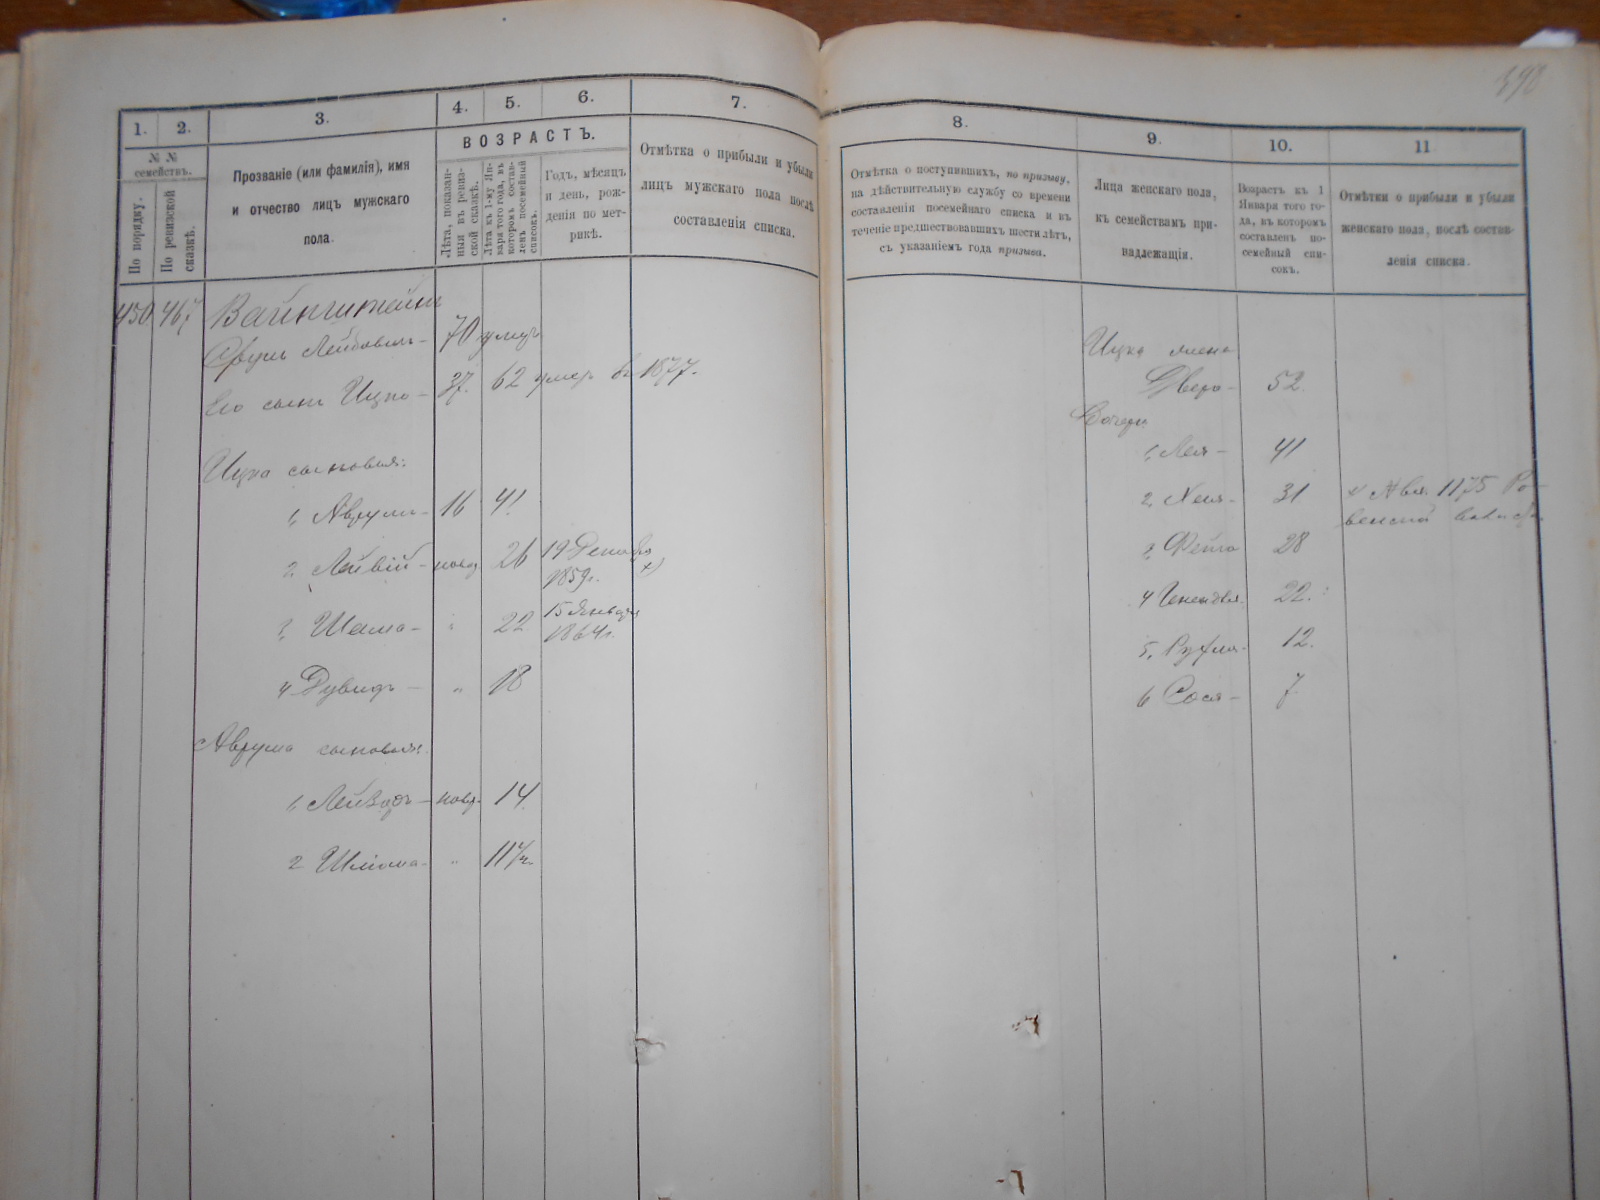 1. 2. 3. 4. 5. 6. 7.
№ № семействъ.
По порядку.
По ревизской сказкѣ.
Прозваніе (или фамилія), имя
и отчество лицъ мужскаго
пола.
ВОЗРАСТЪ.
Лѣта, показан-
ныя въ ревиз-
ской сказкѣ.
Лѣта къ 1-му Ян-
варя того года, въ
которомъ состав-
ленъ посемейный
списокъ.
Годъ, мѣсяцъ
и день, рож-
денія по мет-
рикѣ.
Отмѣтка о прибыли и убыли
лицъ мужскаго пола послѣ
составленія списка.
450 467 Вайнштейнъ
Лейбовичъ - 70 умеръ
Его сынъ Ицко - 37. 62 умеръ въ 1877.
Ицка сыновья:
1, Аврумъ - 16 41
2, - 26 19 Декабря
1859г.
3, Шама - " 22 15 Января
1864г.
4 Дувидъ - " 18
Аврума сыновья.
1, - 14
2 Шліома - " 11
8. 9. 10. 11
Отмѣтка о поступившихъ, по призыву,
на дѣйствительную службу со времени
составленія посемейнаго списка и въ
теченіе предшествовавшихъ шести лѣтъ,
съ указаніемъ года призыва.
Лица женскаго пола,
къ семействамъ при-
надлежащія.
Возрастъ къ 1
Января того го-
да, въ которомъ
составленъ по-
семейный спи-
сокъ.
Отмѣтки о прибыли и убыли
женскаго пола, послѣ состав-
ленія списка.
Ицка жена
Двера - 52.
Дочери
1, Лея - 41
2, Хеня - 31
3, Фейга 28
4 Генендля. 22.
5, Рухля - 12.
6 Сося - 7